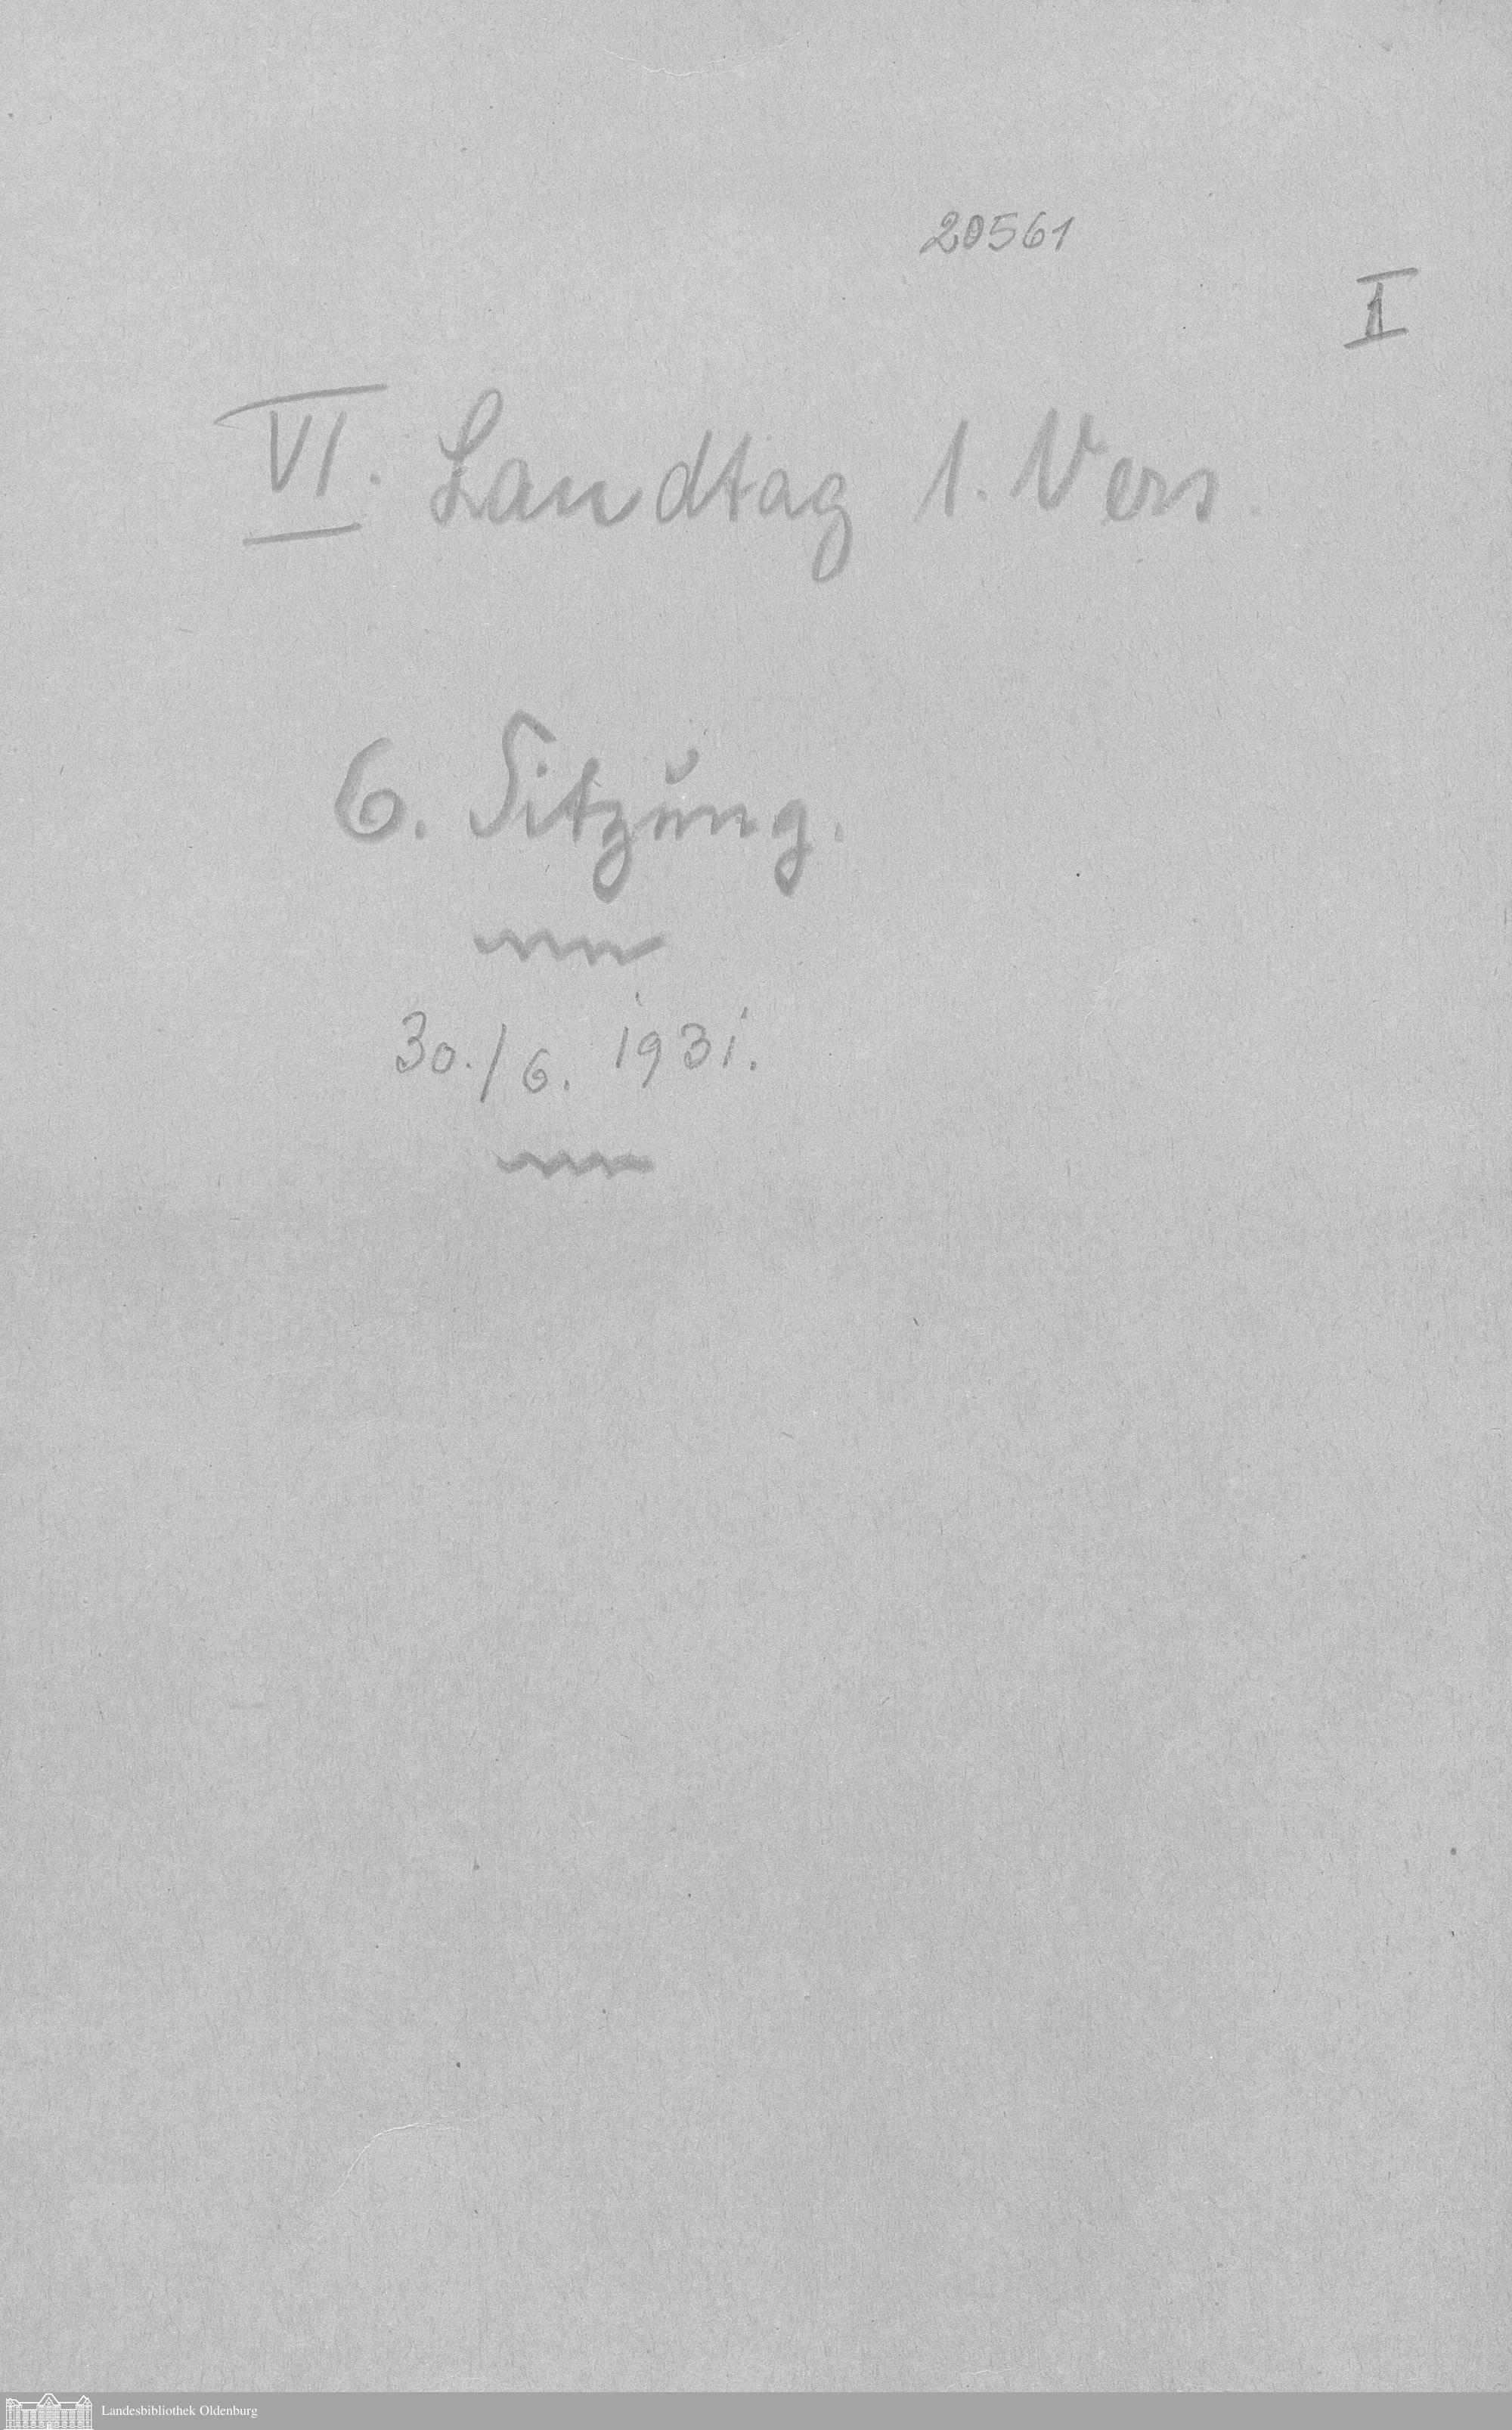 20561
I
VI. Landtag 1. Vers.
6. Sitzung.
30./6. 1931.
Landesbibliothek Oldenburg